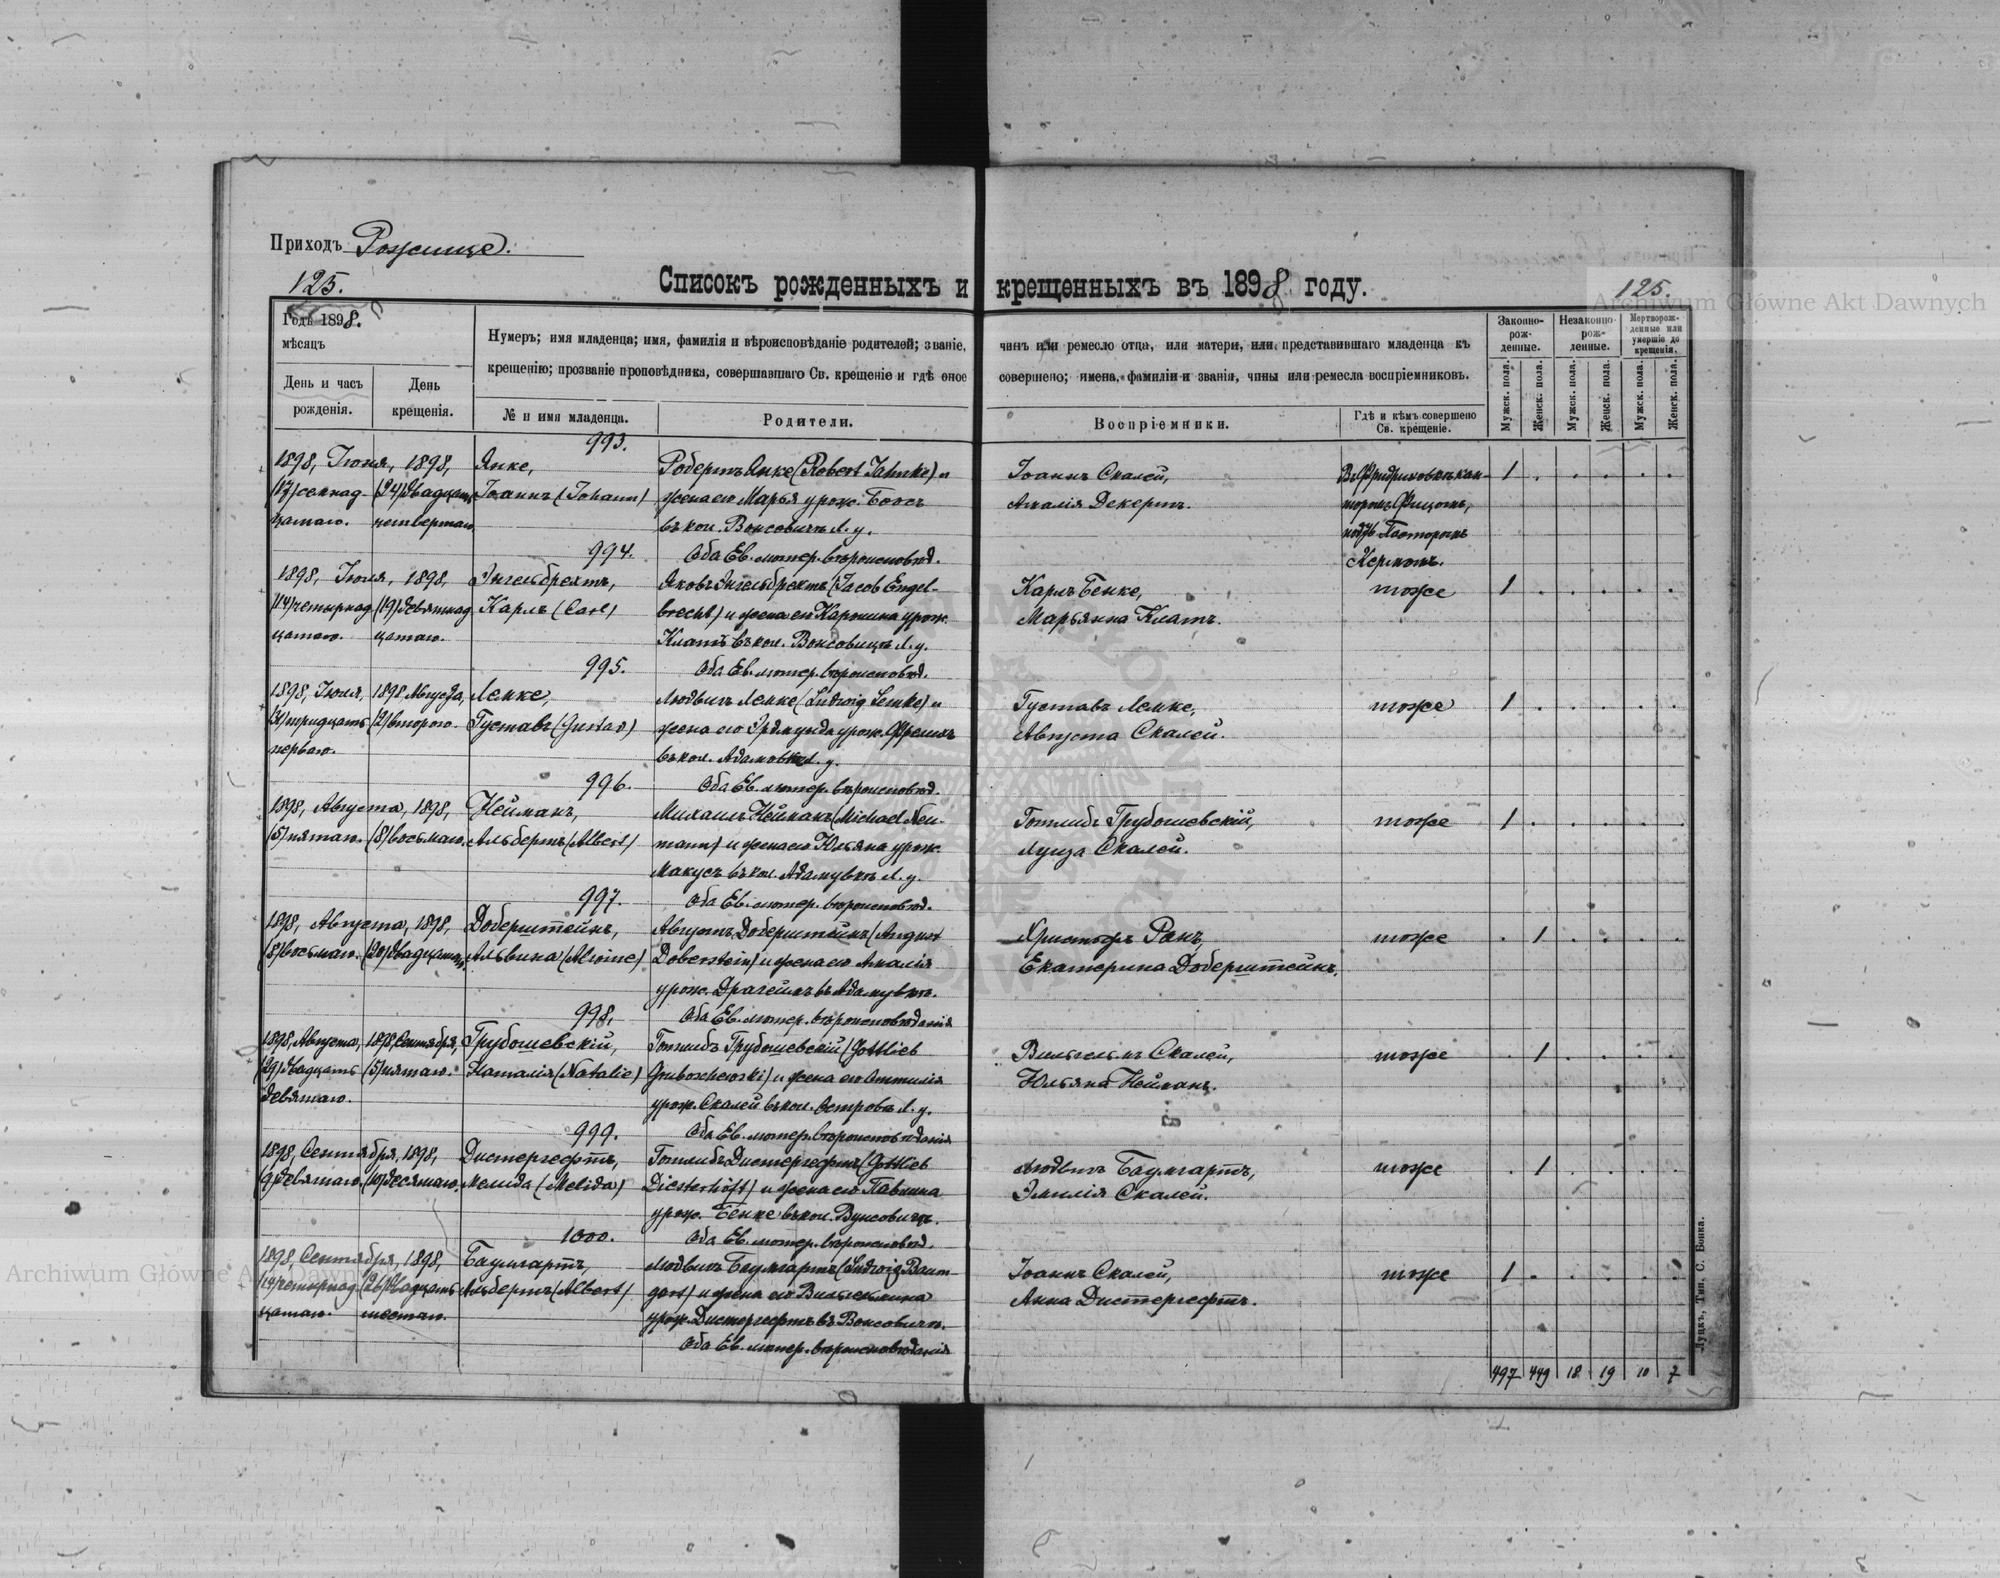 Приходъ Рожище.
125.
Списокъ рожденныхъ и крещенныхъ въ 1898 году.
125.
Archiwum Główne Akt Dawnych
Годъ 1898.
мѣсяцъ
День и часъ
рожденія.
День
крещенія.
Нумеръ; имя младенца; имя, фамилія и вѣроисповѣданіе родителей; званіе, чинъ или ремесло отца, или матери, или представившаго младенца къ
крещенію; прозваніе проповѣдника, совершавшаго Св. крещеніе и гдѣ оное совершено; имена, фамиліи и званія, чины или ремесла воспріемниковъ.
№ и имя младенца.
Родители.
Воспріемники.
Гдѣ и кѣмъ совершено
Св. крещеніе.
Законно-
рож-
денные.
Незаконно-
рож-
денные.
Мертворож-
денные или
умершіе до
крещенія.
Мужск. пола.
Женск. пола.
Мужск. пола.
Женск. пола.
Мужск. пола.
Женск. пола.
993.
1898, Іюня, 1898, Янке, Робертъ Янке (Robert Jahnke) и Іоаннъ Скалей, 1
(17) семнад- (24) двадцать Іоаннъ (Johann) жена его Марья урож. Боосъ Амалія Декертъ.
цатаго. четвертаго. въ кол. Воксовичъ Л. у.
Оба Ев. лютер. вѣроисповѣд.
Пасторомъ
Керномъ.
994.
1898, Іюля, 1898, Энгельбрехтъ, Яковъ Энгельбрехтъ (Jacob Engel- Карлъ Бенке, тоже 1
(14) четырнад- (19) девятнад- Карлъ (Carl) brecht) и жена его Каролина урож. Марьянна Клатъ.
цатаго. цатаго. Клатъ въ кол. Воксовичъ Л. у.
Оба Ев. лютер. вѣроисповѣд.
995.
1898, Іюля, 1898 Августа, Лемке, Людвигъ Лемке (Ludwig Lemke) и Густавъ Лемке, тоже 1
(31) тридцать (2) второго. Густавъ (Gustav) жена его Эрдмунда урож. Августа Скалей.
перваго. въ кол. Адамовка Л. у.
Оба Ев. лютер. вѣроисповѣд.
996.
1898, Августа, 1898, Нейманъ, Михаилъ Нейманъ (Michael Neu- Готлибъ Грубошевскій, тоже 1
(5) пятаго. (8) восьмаго. Альбертъ (Albert) mann) и жена его Юльяна урож. Луиза Скалей.
Макусъ въ кол. Адамувкѣ Л. у.
Оба Ев. лютер. вѣроисповѣд.
997.
1898, Августа, 1898, Доберштейнъ, Августъ Доберштейнъ (August Христофъ Ранъ, тоже 1
(8) восьмаго. (20) двадцатаго. Альвина (Alwine) Doberstein) и жена его Амалія Екатерина Доберштейнъ.
урож. Драгеймъ въ Адамувкѣ.
Оба Ев. лютер. вѣроисповѣданія
998.
1898, Августа, 1898, Сентября, Грубошевскій, Готлибъ Грубошевскій (Gottlieb Вильгельмъ Скалей, тоже 1
(29) двадцать (5) пятаго. Наталія (Natalie) Gruboschewski) и жена его Оттилія Юльяна Нейманъ.
девятаго. урож. Скалей въ кол. Островъ Л. у.
Оба Ев. лютер. вѣроисповѣданія
999.
1898, Сентября, 1898, Дистергефтъ, Готлибъ Дистергефтъ (Gottlieb Людвигъ Баумгартъ, тоже 1
(9) девятаго. (10) десятаго. Мелида (Melida) Diesterhöft) и жена его Павлина Эмилія Скалей.
урож. Бенке въ кол. Вуксовичъ.
Оба Ев. лютер. вѣроисповѣд.
1000.
1898, Сентября, 1898, Баумгартъ, Людвигъ Баумгартъ (Ludwig Baum- Іоаннъ Скалей, тоже 1
(14) четырнад- (26) двадцать Альбертъ (Albert) gart) и жена его Вильгельмина Анна Дистергефтъ.
цатаго. шестаго. урож. Дистергефтъ въ Воксовичъ.
Оба Ев. лютер. вѣроисповѣданія
497 449 18 19 10 7
Луцкъ, Тип. С. Бонка.
Archiwum Główne Akt Dawnych